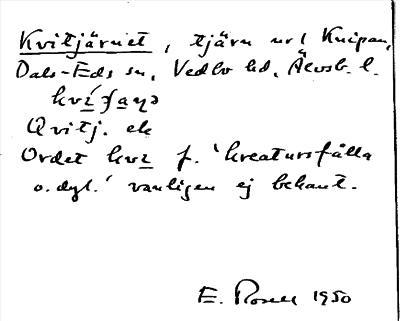 Kvitjärnet, tjärn nr 1 Knipan,
Dals-Eds sn, Vedbo hd, Älvsb. l.
Qvitj. ek
Ordet kvı f. 'kreatursfålla
o. dyl.' vanligen ej bekant.
E. Rosell 1950